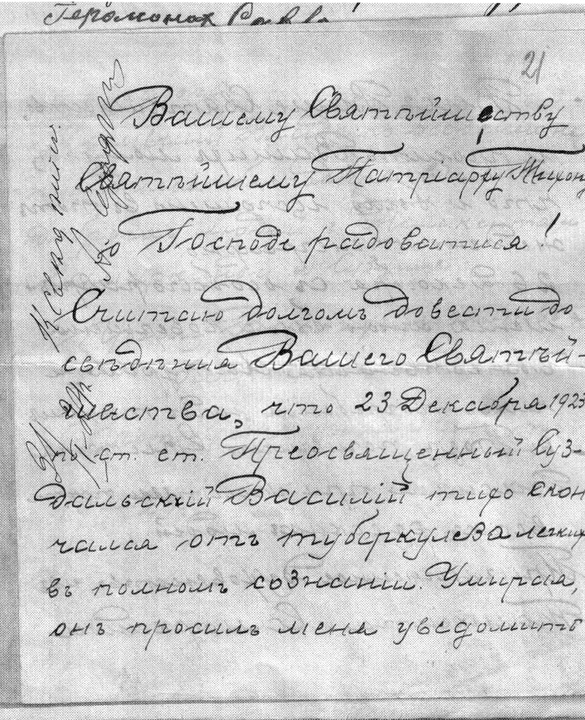 Іеромонах Савва
21
Вашему Святѣйшеству
Святѣйшему Патриарху Тихону
о Господе радоватися!
Считаю долгомъ довести до
свѣдѣния Вашего Святѣй-
шества, что 23 Декабря 1923
по ст. ст. Преосвященный Суз-
дальскій Василій тихо скон
чался отъ туберкулеза легких
въ полномъ сознаніи. Умирая,
онъ просилъ меня уведомить